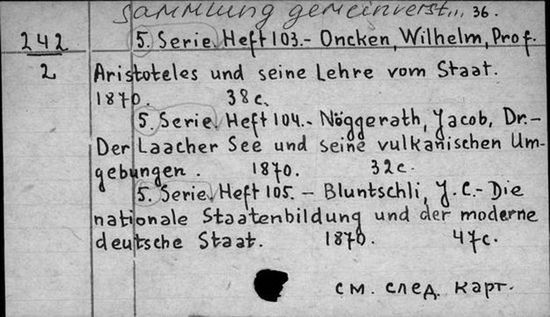 Sammlung gemeinverst., 36.
242
2
5. Serie. Heft 103.- Oncken, Wilhelm, Prof.
Aristoteles und seine Lehre vom Staat.
1870. 38 c.
5. Serie. Heft 104.- Nöggerath, Jacob, Dr.-
Der Laacher See und seine vulkanischen Um-
gebungen. 1870. 32 c.
5. Serie. Heft 105. - Bluntschli, J. C.- Die
nationale Staatenbildung und der moderne
deutsche Staat. 1870. 47 c.
см. след. карт.